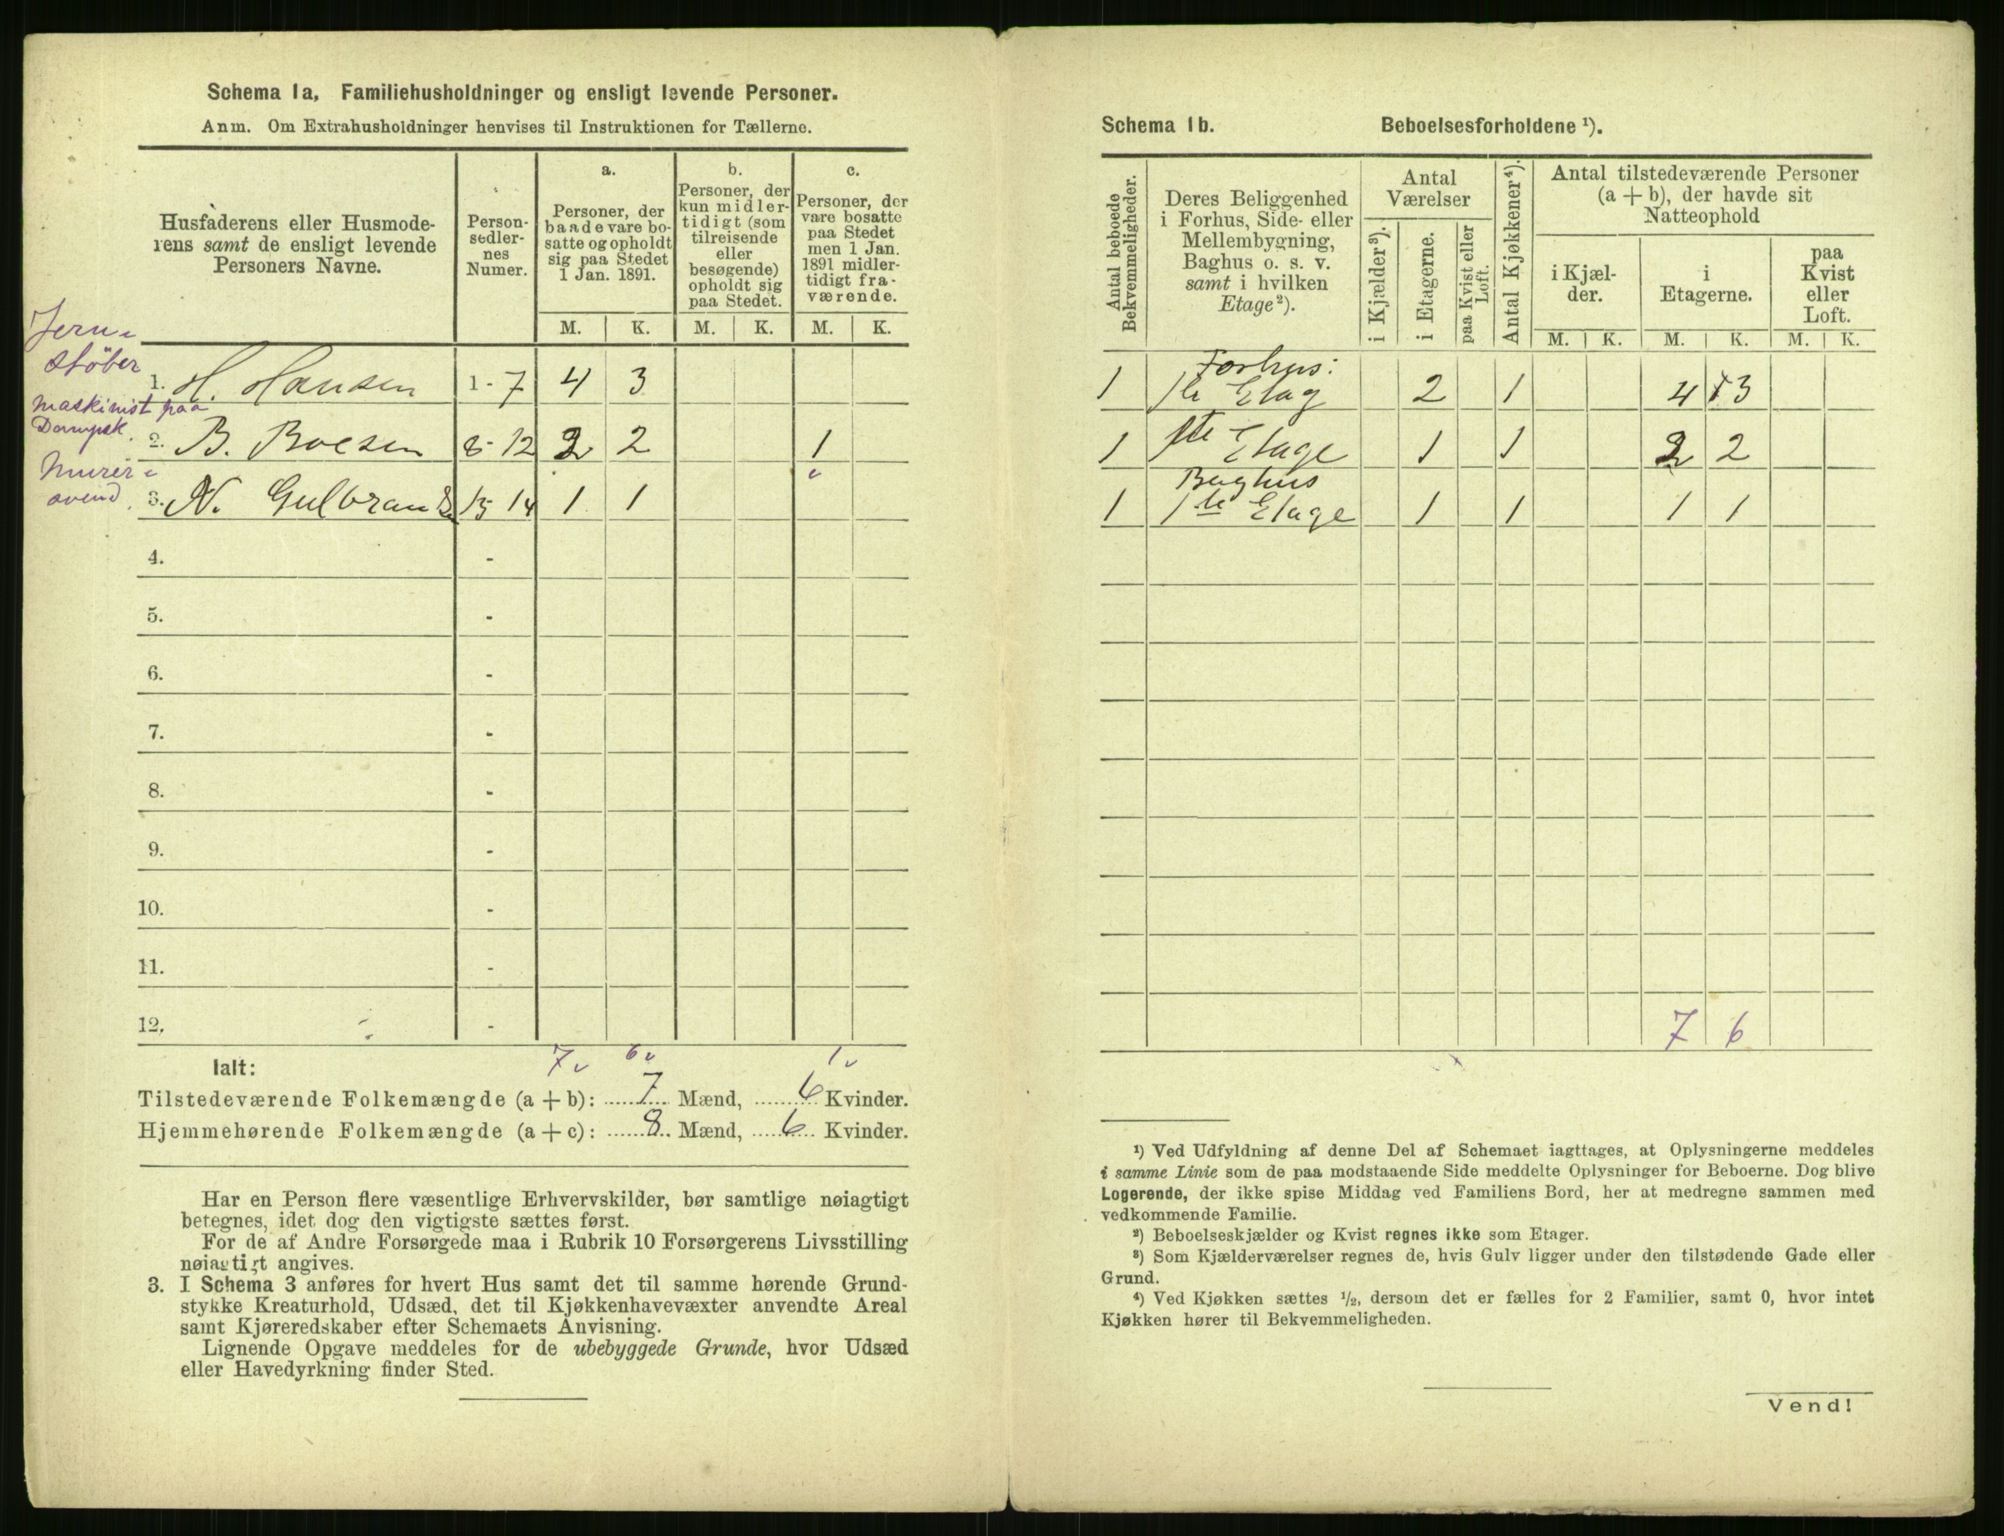 Schema 1a. Familiehusholdninger og ensligt levende Personer.
Anm. Om Extrahusholdninger henvises til Instruktionen for Tællerne.
Husfaderens eller Husmode-
rens samt de ensligt levende
Personers Navne.
Person-
sedler-
nes
Numer.
a.
Personer, der
baade vare bo-
satte og opholdt
sig paa Stedet
1 Jan. 1891.
b.
Personer, der
kun midler-
tidigt (som
tilreisende
eller
besøgende)
opholdt sig
paa Stedet.
c.
Personer, der
vare bosatte
paa Stedet
men 1 Jan.
1891 midler-
tidigt fra-
værende.
M. K. M. K. M. K.
Jern-
støber
1. H. Hansen 1-7 4 3
Maskinist paa
Dampsk.
2. B. Boesen 8-12 2 2 1
Murer-
svend
3. N. Gulbrands 13 14 1 1
4. -
5. -
6. -
7. -
8. -
9. -
10. -
11. -
12. -
Ialt: 7 6 1
Tilstedeværende Folkemængde (a + b): 7 Mænd, 6 Kvinder.
Hjemmehørende Folkemængde (a + c): 8 Mænd, 6 Kvinder.
Har en Person flere væsentlige Erhvervskilder, bør samtlige nøiagtigt
betegnes, idet dog den vigtigste sættes først.
For de af Andre Forsørgede maa i Rubrik 10 Forsørgerens Livsstilling
nøiagtigt angives.
3. I Schema 3 anføres for hvert Hus samt det til samme hørende Grund-
stykke Kreaturhold, Udsæd, det til Kjøkkenhavevæxter anvendte Areal
samt Kjøreredskaber efter Schemaets Anvisning.
Lignende Opgave meddeles for de ubebyggede Grunde, hvor Udsæd
eller Havedyrkning finder Sted.
Schema 1b. Beboelsesforholdene ¹).
Antal beboede
Bekvemmeligheder.
Deres Beliggenhed
i Forhus, Side- eller
Mellembygning,
Baghus o. s. v.
samt i hvilken
Etage²).
Antal
Værelser
i Kjælder³).
i Etagerne.
paa Kvist eller
Loft.
Antal Kjøkkener⁴).
Antal tilstedeværende Personer
(a + b), der havde sit
Natteophold
i Kjæl-
der.
i
Etagerne.
paa
Kvist
eller
Loft.
M. K. M. K. M. K.
Forhus:
1 1te Etag 2 1 4 3
1 1te Etage 1 1 2 2
Baghus
1 1te Etage 1 1 1 1
7 6
¹) Ved Udfyldning af denne Del af Schemaet iagttages, at Oplysningerne meddeles
i samme Linie som de paa modstaaende Side meddelte Oplysninger for Beboerne. Dog blive
Logerende, der ikke spise Middag ved Familiens Bord, her at medregne sammen med
vedkommende Familie.
²) Beboelseskjælder og Kvist regnes ikke som Etager.
³) Som Kjælderværelser regnes de, hvis Gulv ligger under den tilstødende Gade eller
Grund.
⁴) Ved Kjøkken sættes ½, dersom det er fælles for 2 Familier, samt 0, hvor intet
Kjøkken hører til Bekvemmeligheden.
Vend!